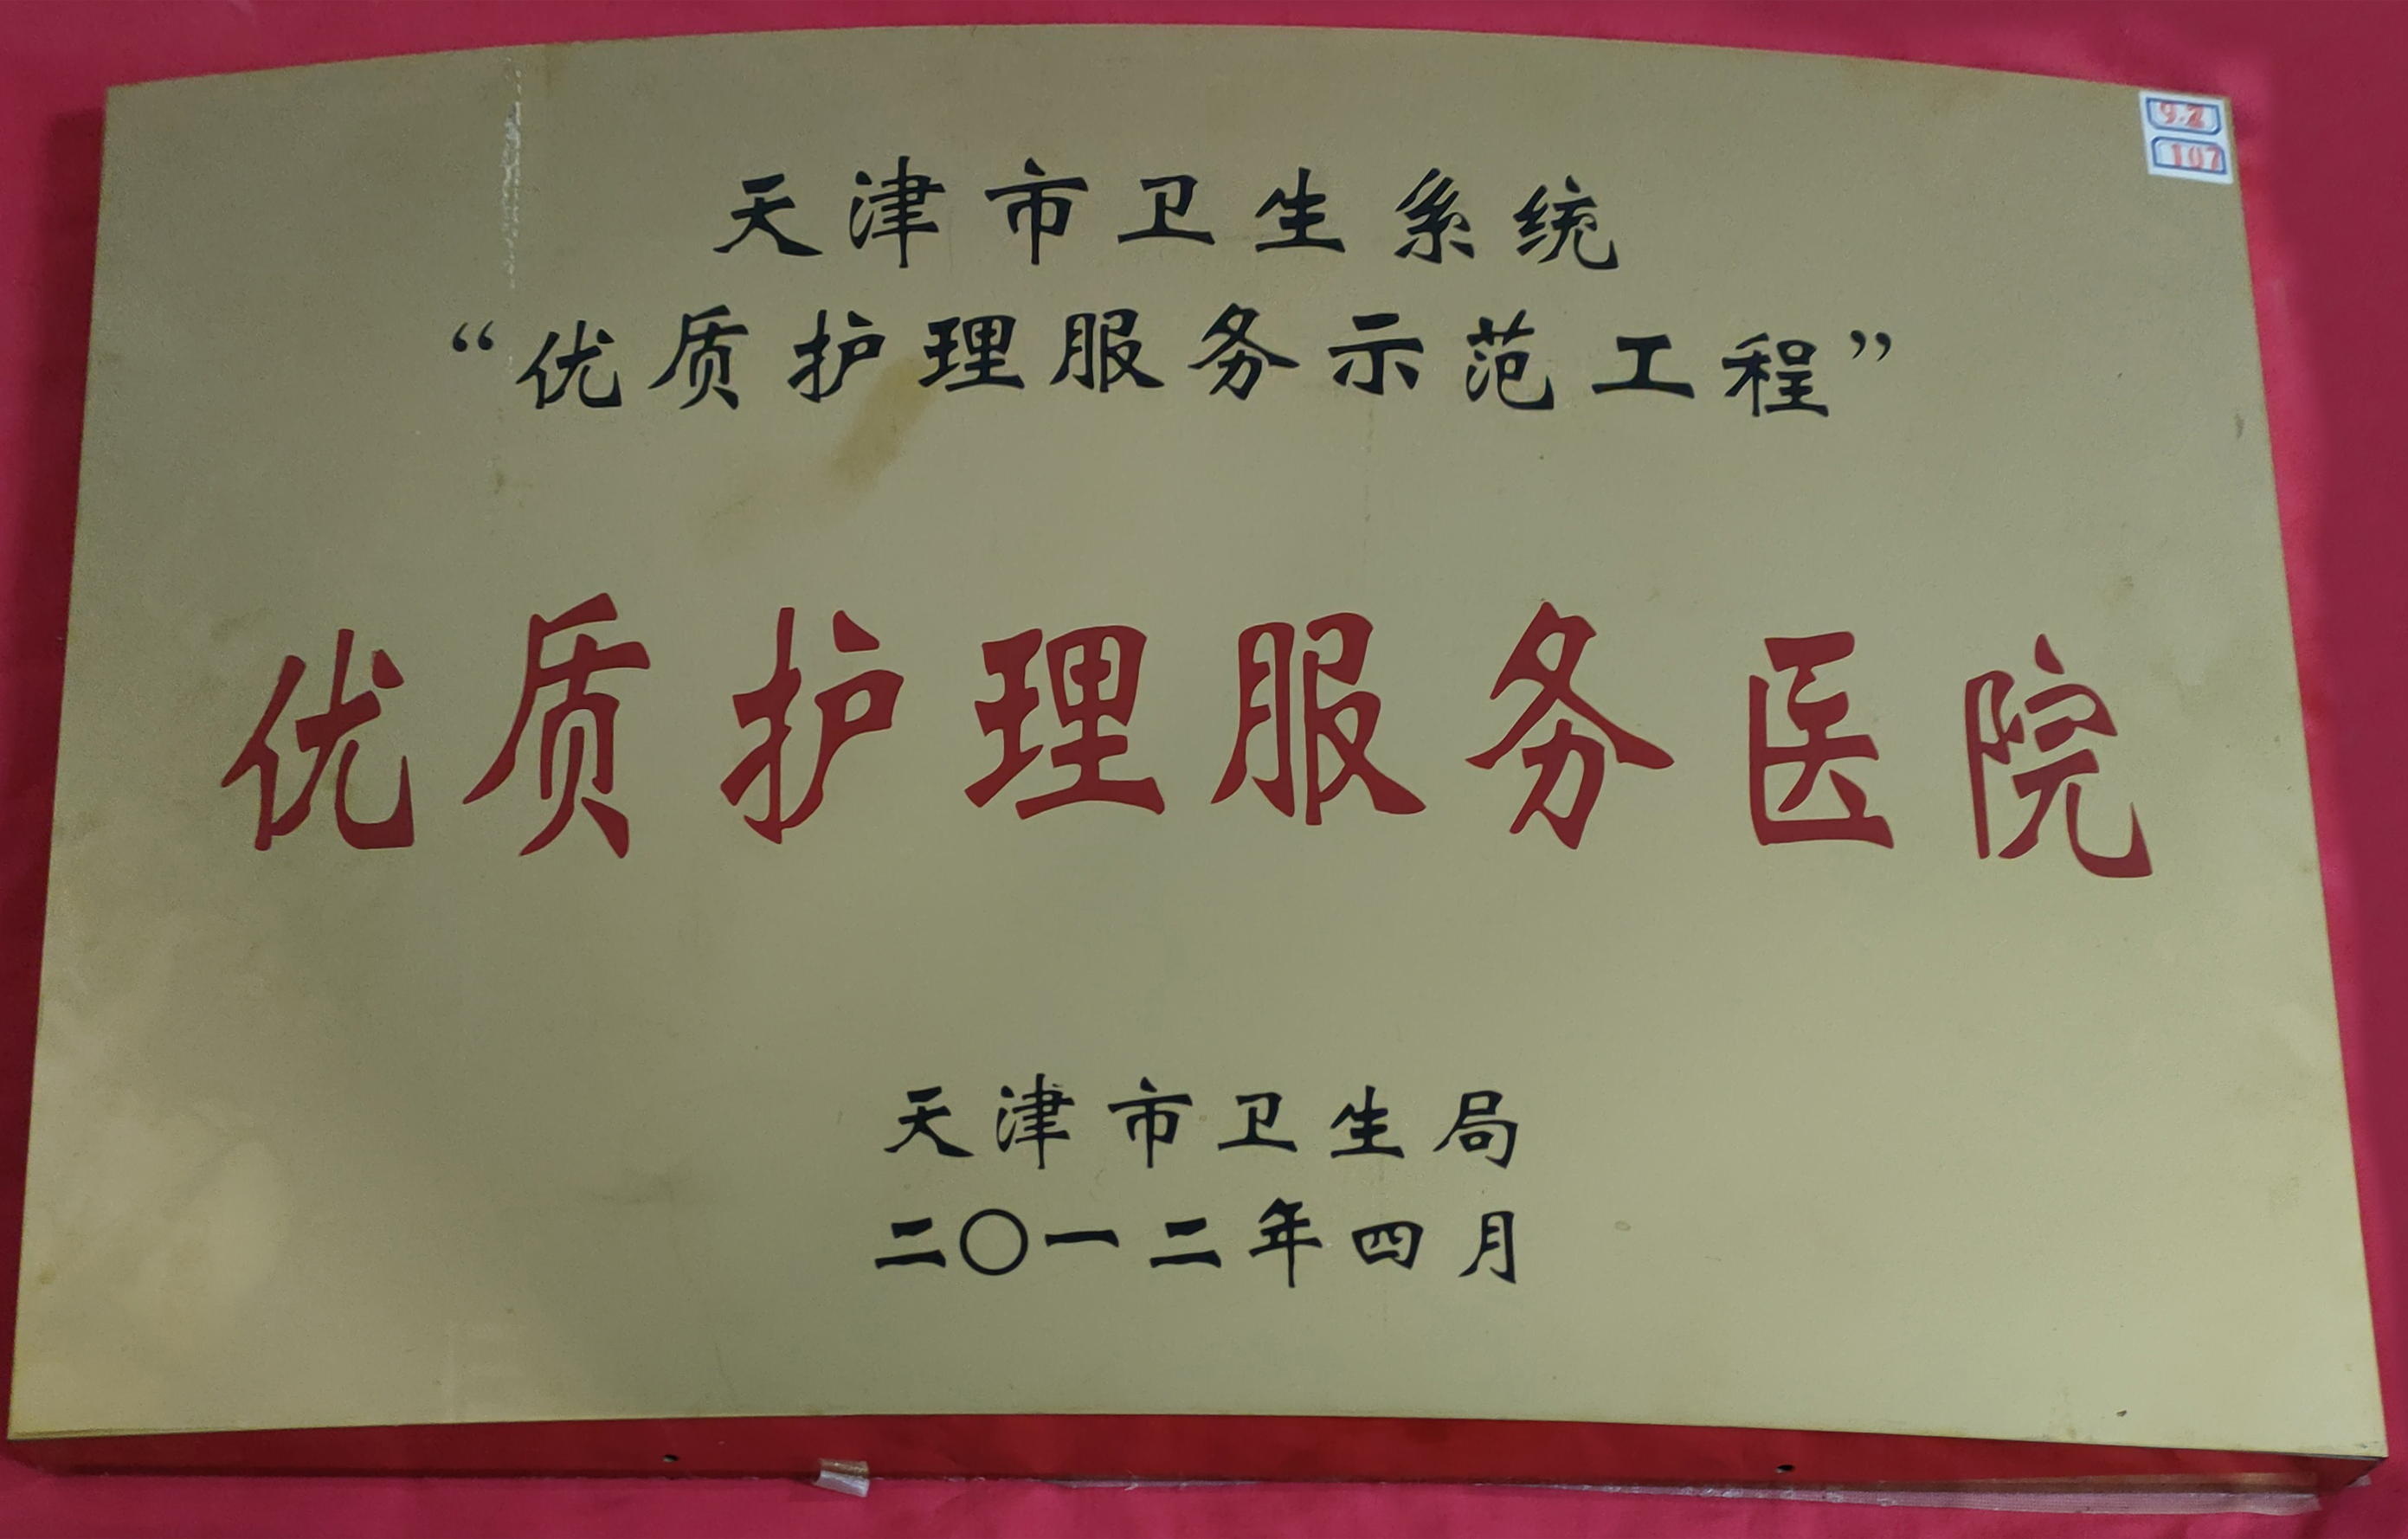 9.2
107
天津市卫生系统
“优质护理服务示范工程”
优质护理服务医院
天津市卫生局
二〇一二年四月